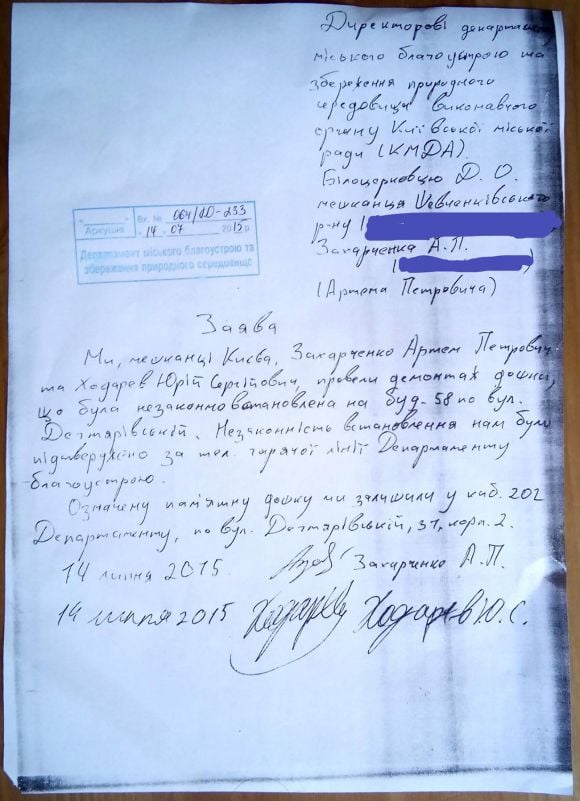 Директорові департаменту
міського благоустрою та
збереження природного
середовища виконавчого
органу Київської міської
ради (КМДА).
Білоцерковцю Д. О.
мешканця Шевченківського
р-ну (
Захарченка А.П.
(                    )
(Артема Петровича)
Вх. № 064/АО-233
Аркушів "14" 07 2015 р.
Департамент міського благоустрою та
збереження природного середовища
Заява
Ми, мешканці Києва, Захарченко Артем Петрович
та Ходарев Юрій Сергійович, провели демонтаж дошки,
що була незаконно встановлена на буд. 58 по вул.
Дегтярівській. Незаконність встановлення нам було
підтверджено за тел. гарячої лінії Департаменту
благоустрою.
Означену пам'ятну дошку ми залишили у каб. 202
Департаменту, по вул. Дегтярівській, 31, корп. 2.
14 липня 2015. Захарченко А.П.
14 липня 2015 Ходарев Ю.С.